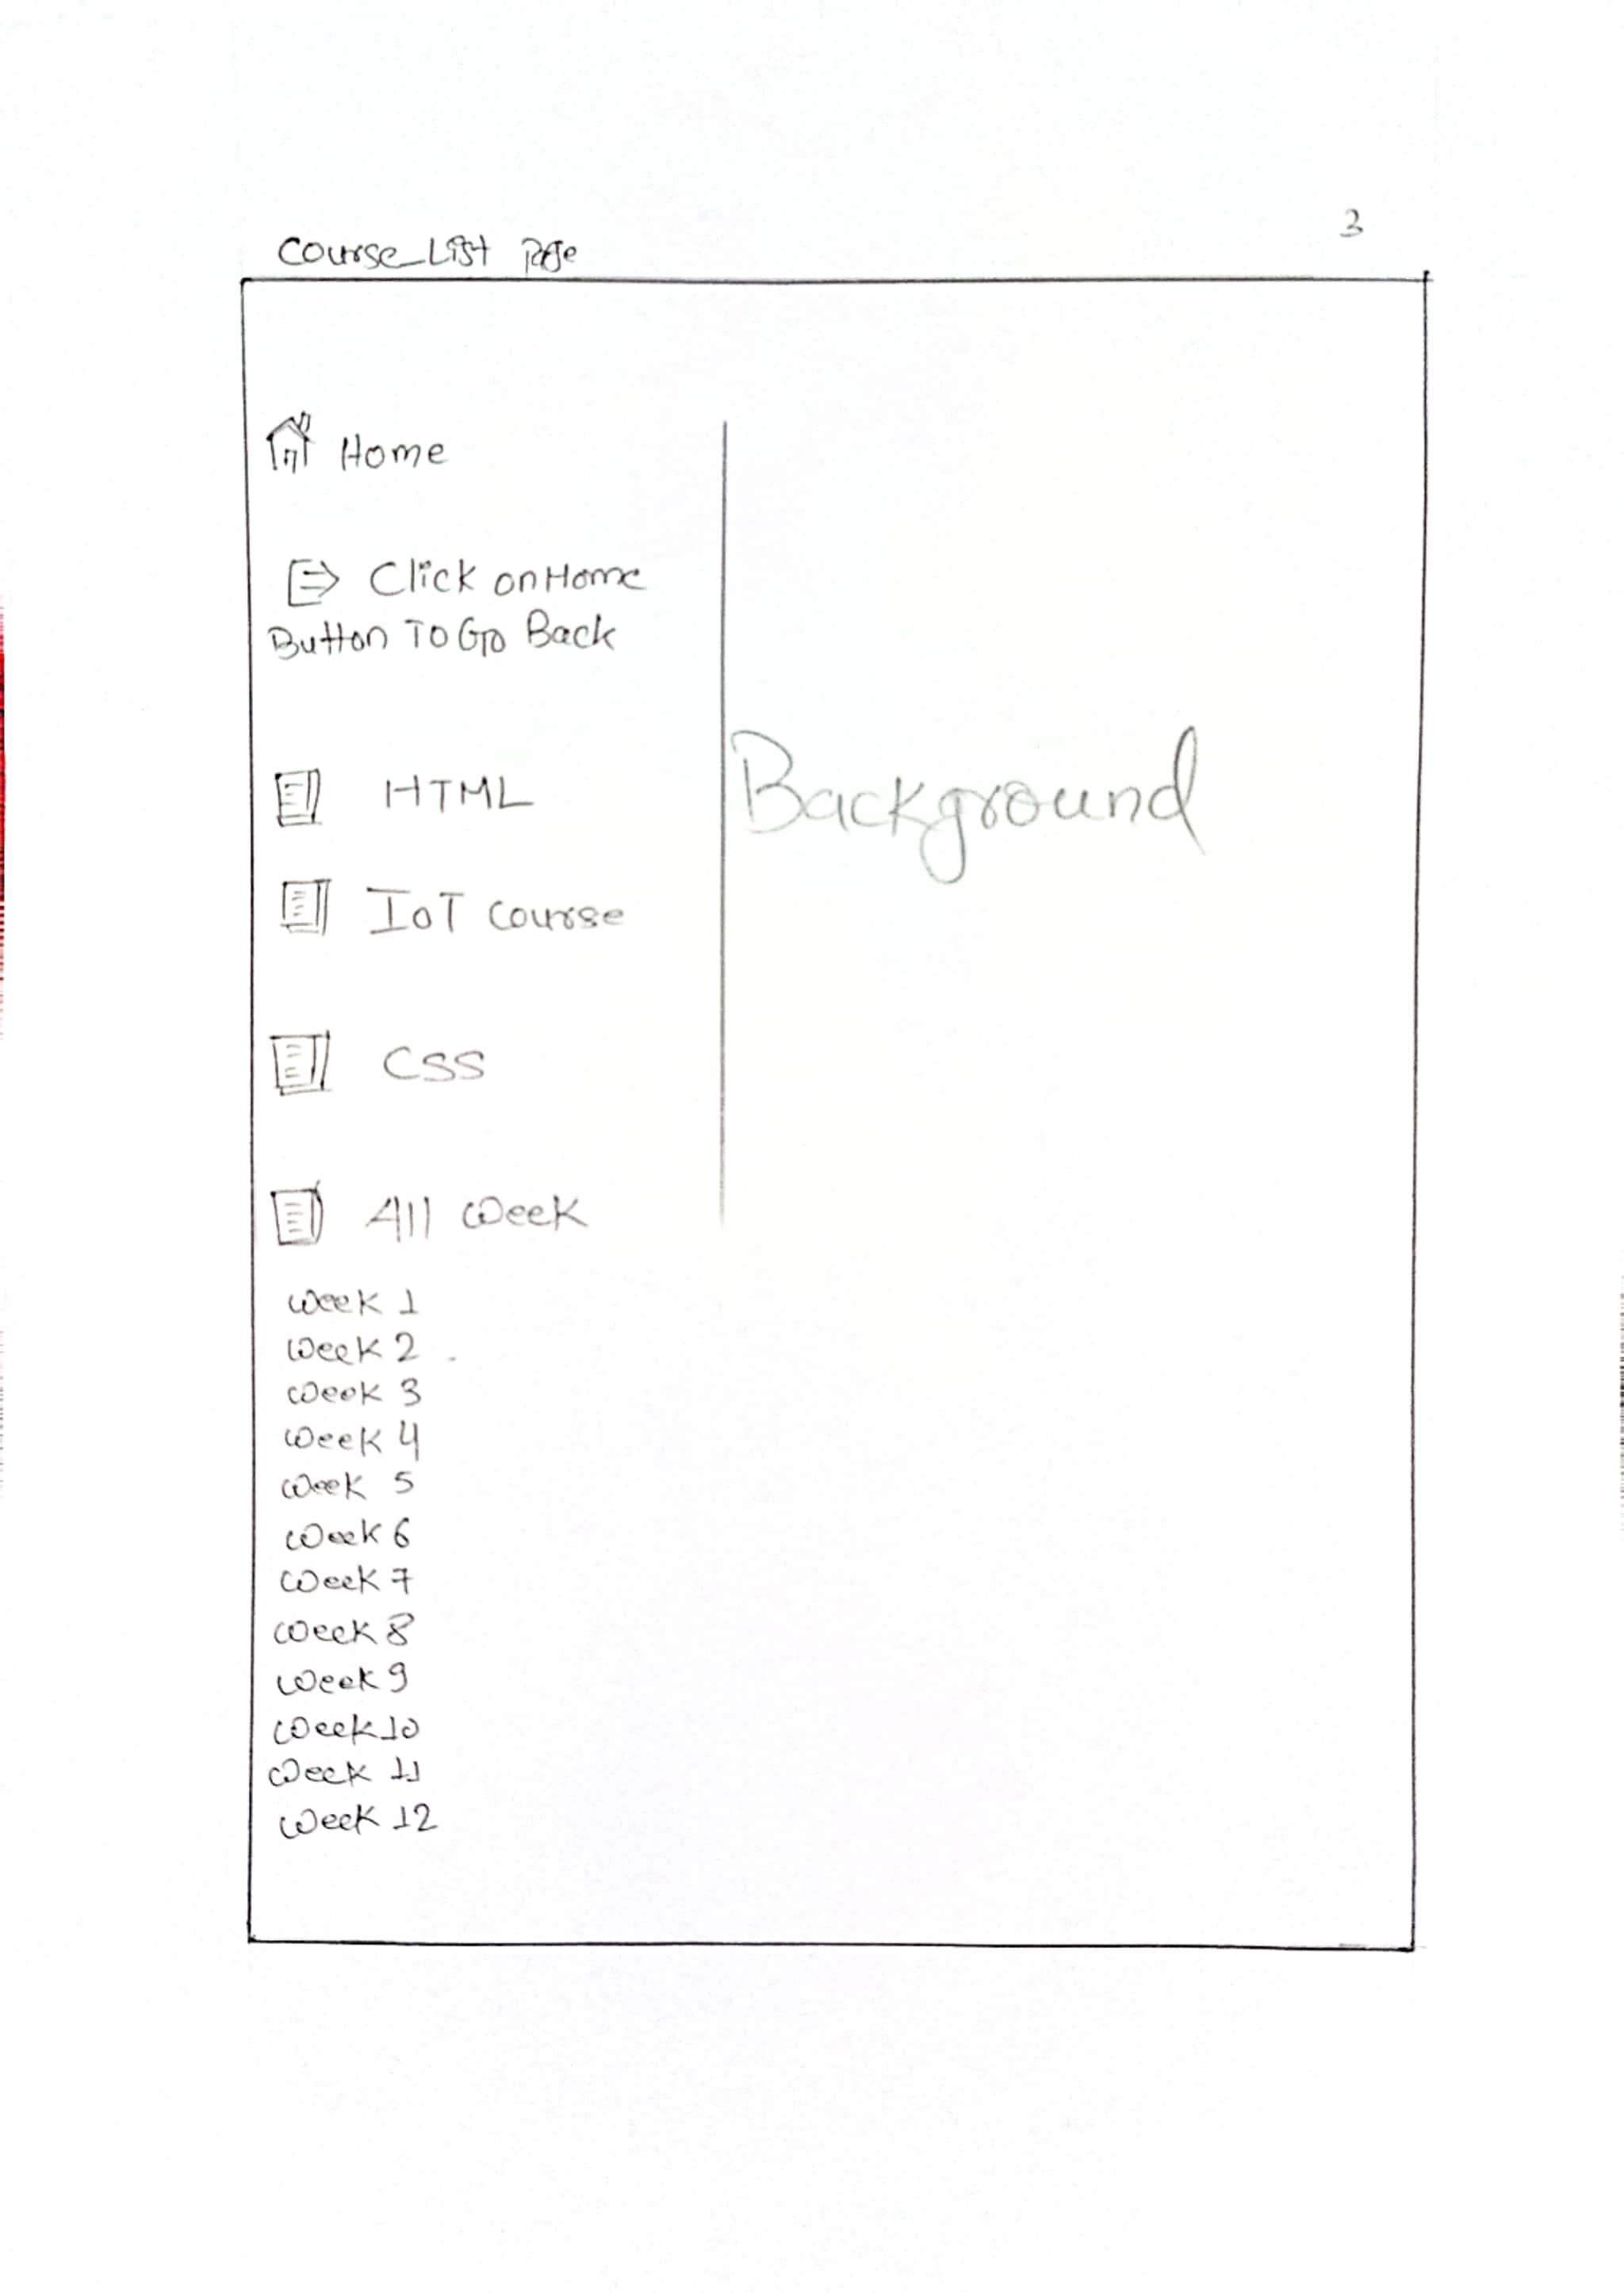 3
Course_List Page
Home
Click on Home
Button To Go Back
HTML
Background
IoT Course
CSS
All Week
Week 1
Week 2
Week 3
Week 4
Week 5
Week 6
Week 7
Week 8
Week 9
Week 10
Week 11
Week 12